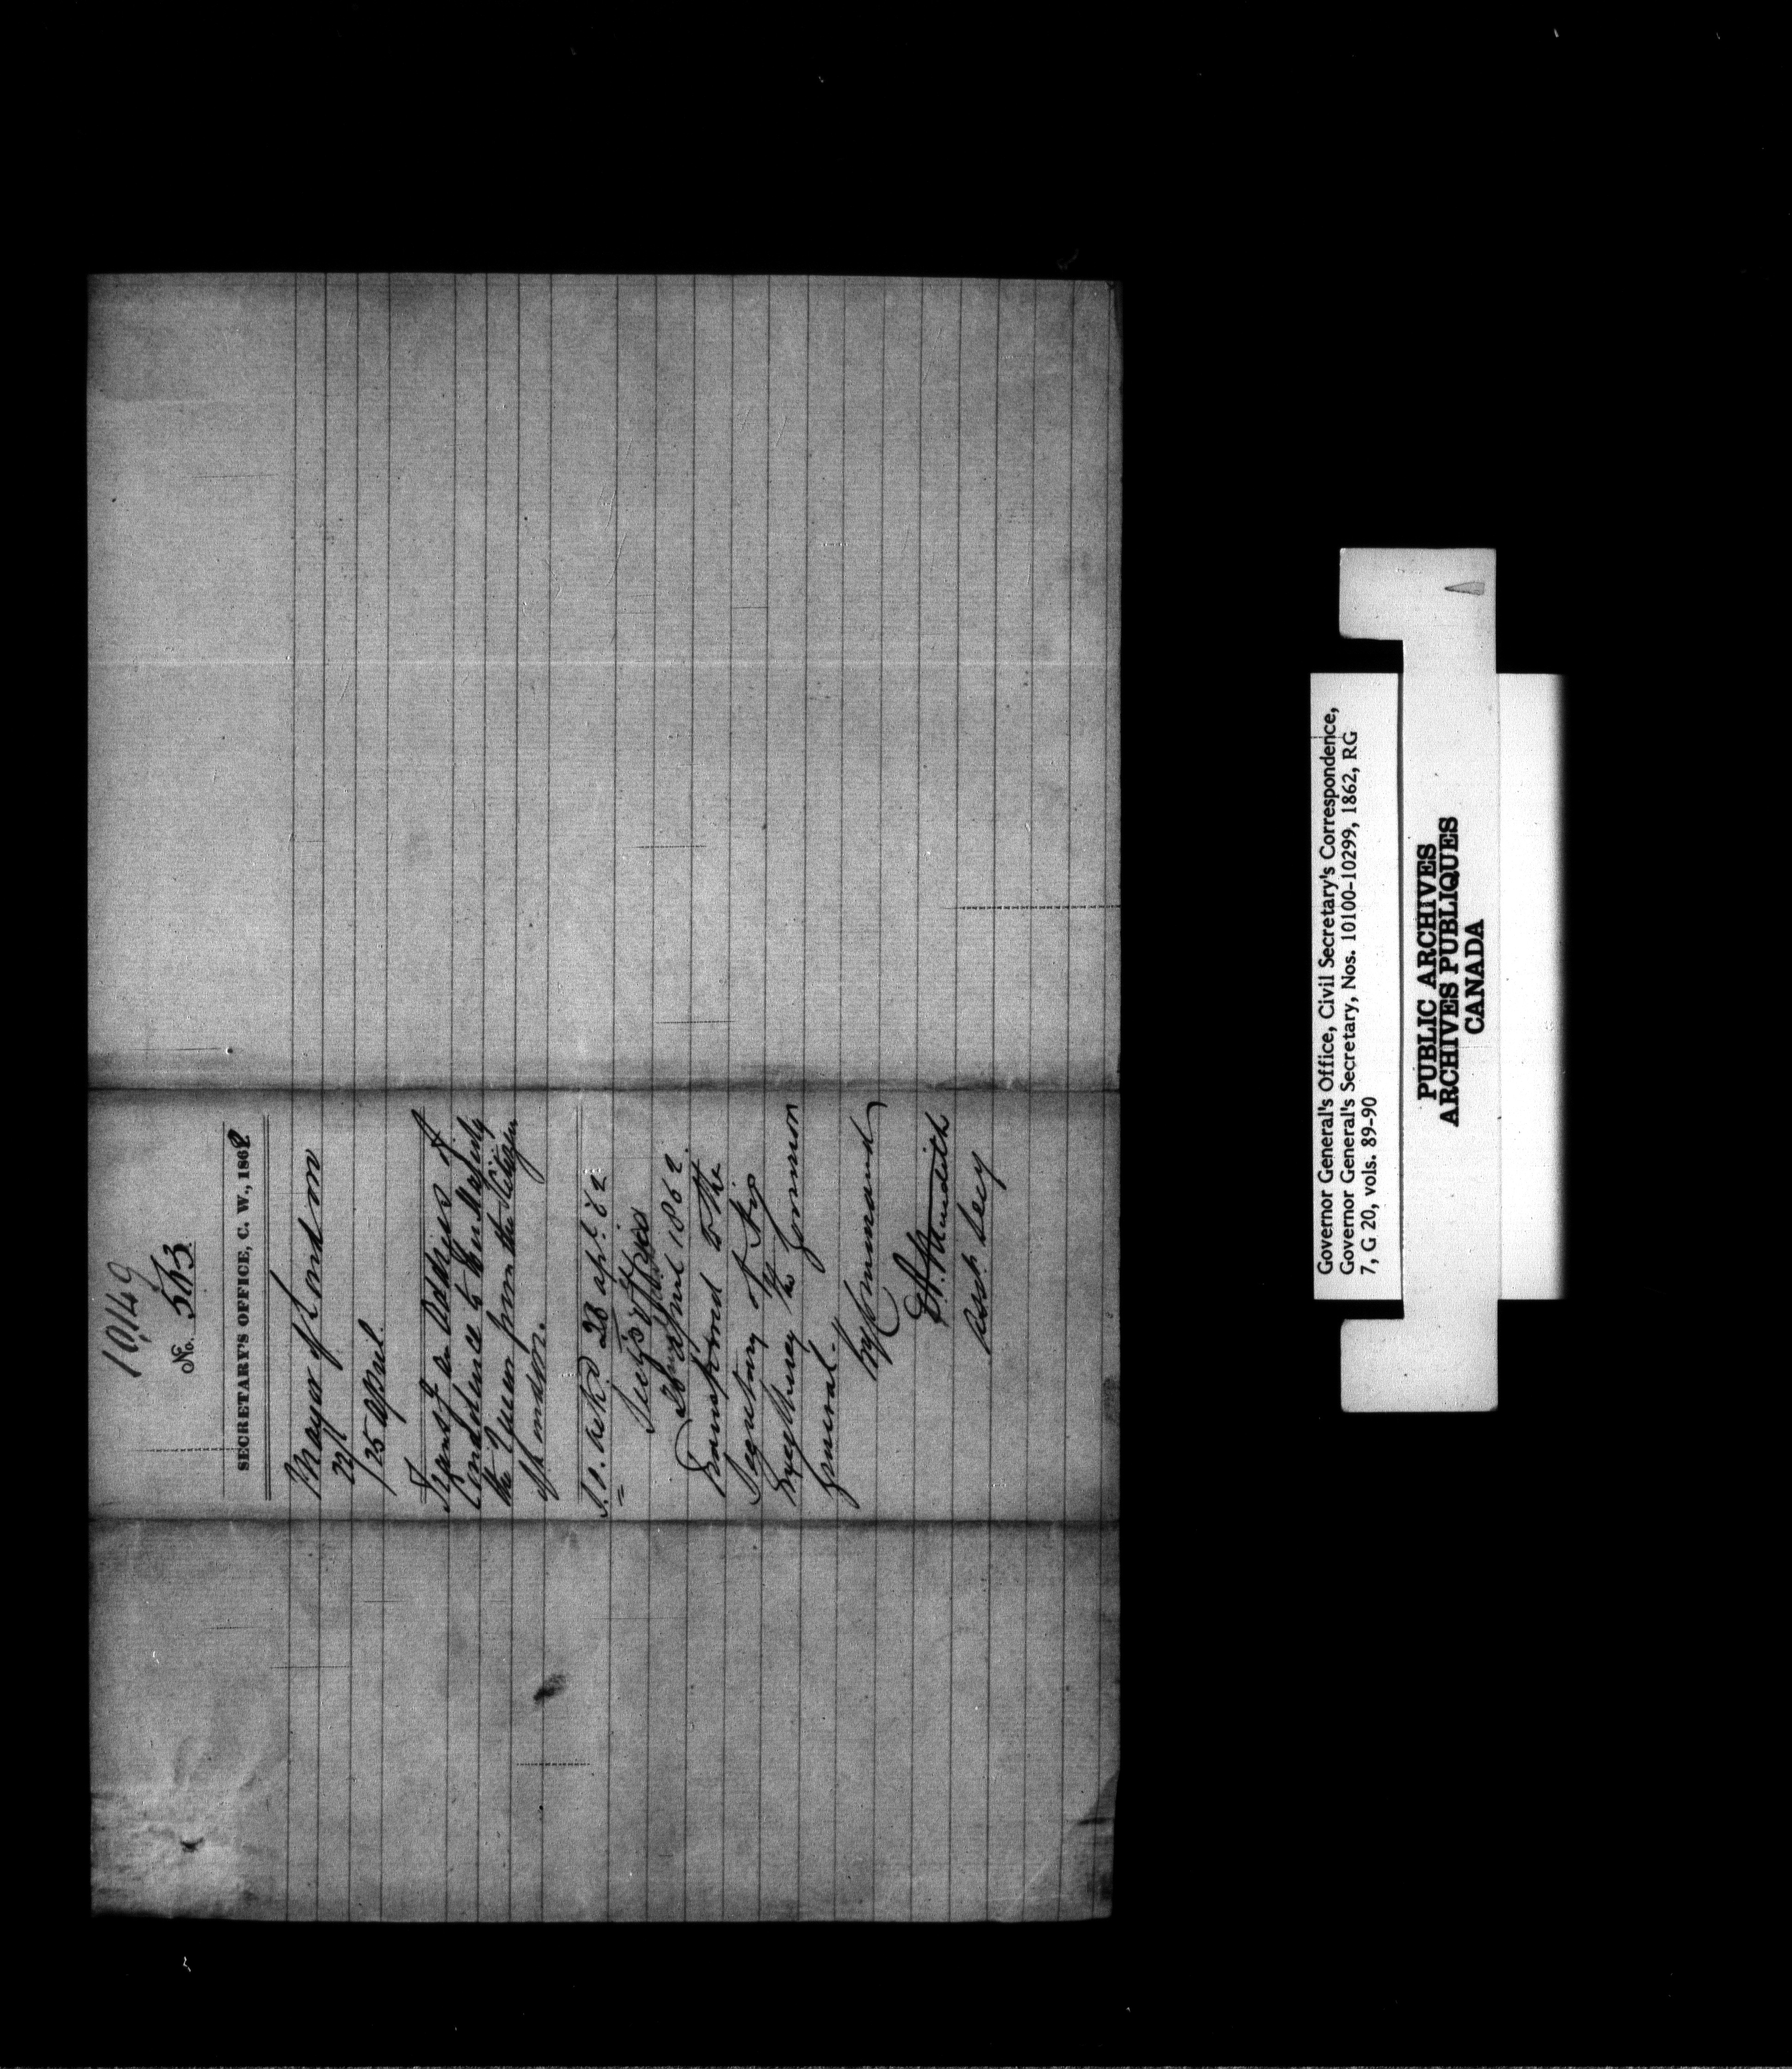 10,149
No. 563
SECRETARY'S OFFICE, C. W., 1862
Mayor of London
22/
/25 April.
Transt. an Address of
Condolence to Her Majesty
the Queen from the Citizens
of London.
ackd. 28 Apl. 62
Secy's Office
28 April 1862.
Transferred to the
Secretary of His
Excellency the Governor
General.
By Command
E A Meredith
Asst. Secy
Governor General's Office, Civil Secretary's Correspondence,
Governor General's Secretary, Nos. 10100-10299, 1862, RG
7, G 20, vols. 89-90
PUBLIC ARCHIVES
ARCHIVES PUBLIQUES
CANADA